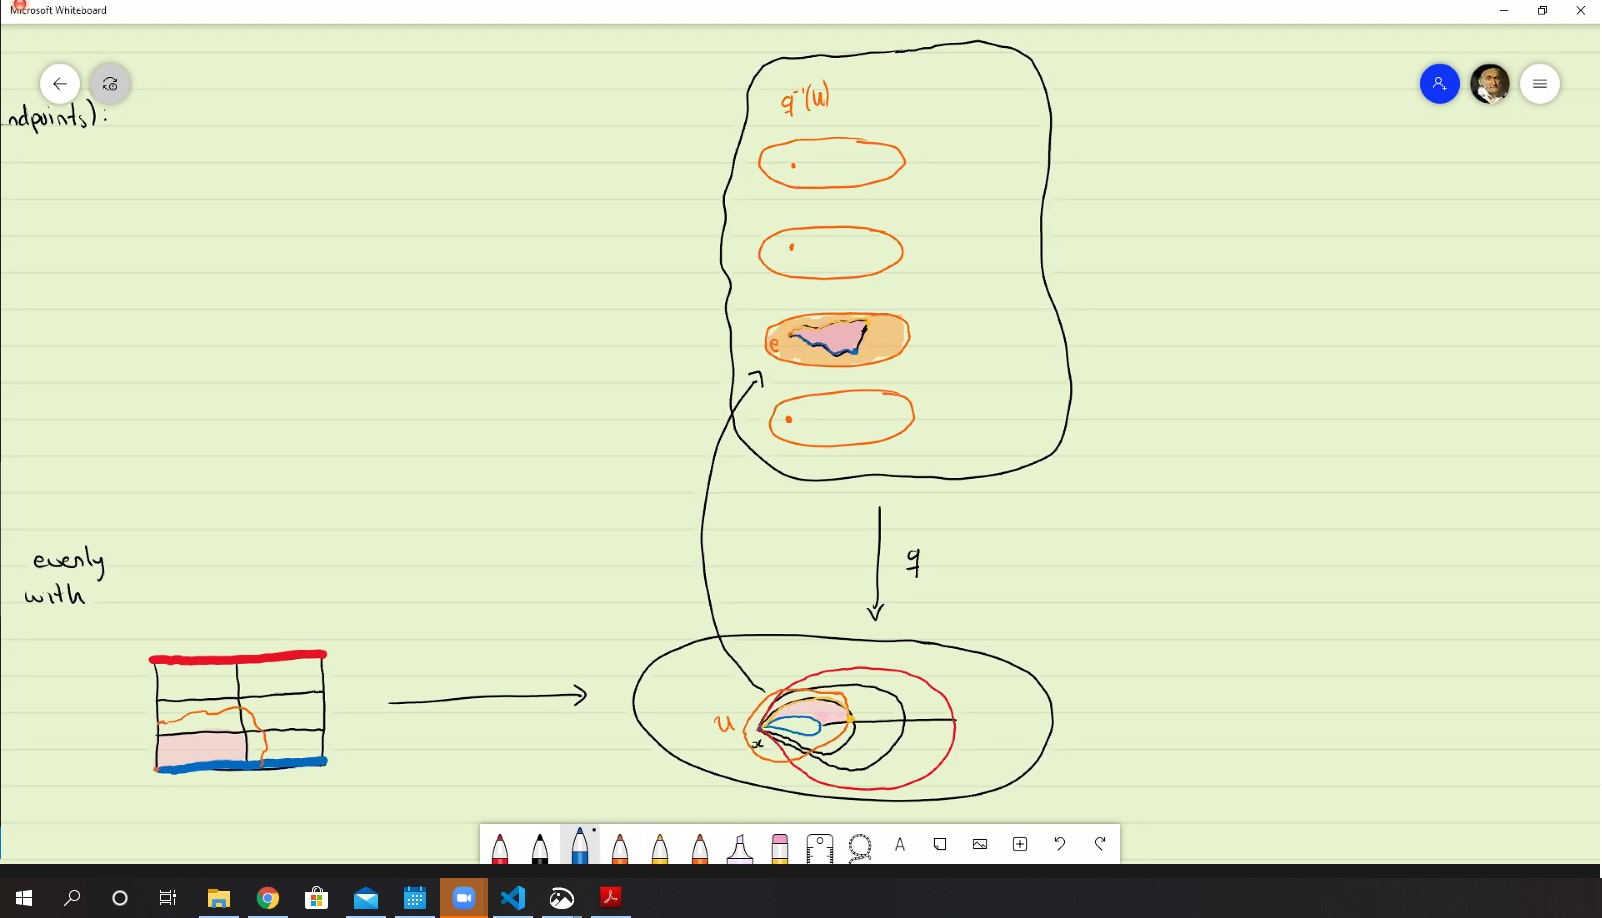 Microsoft Whiteboard
ndpoints):
q⁻¹(U)
e
q
evenly
with
U
x
A